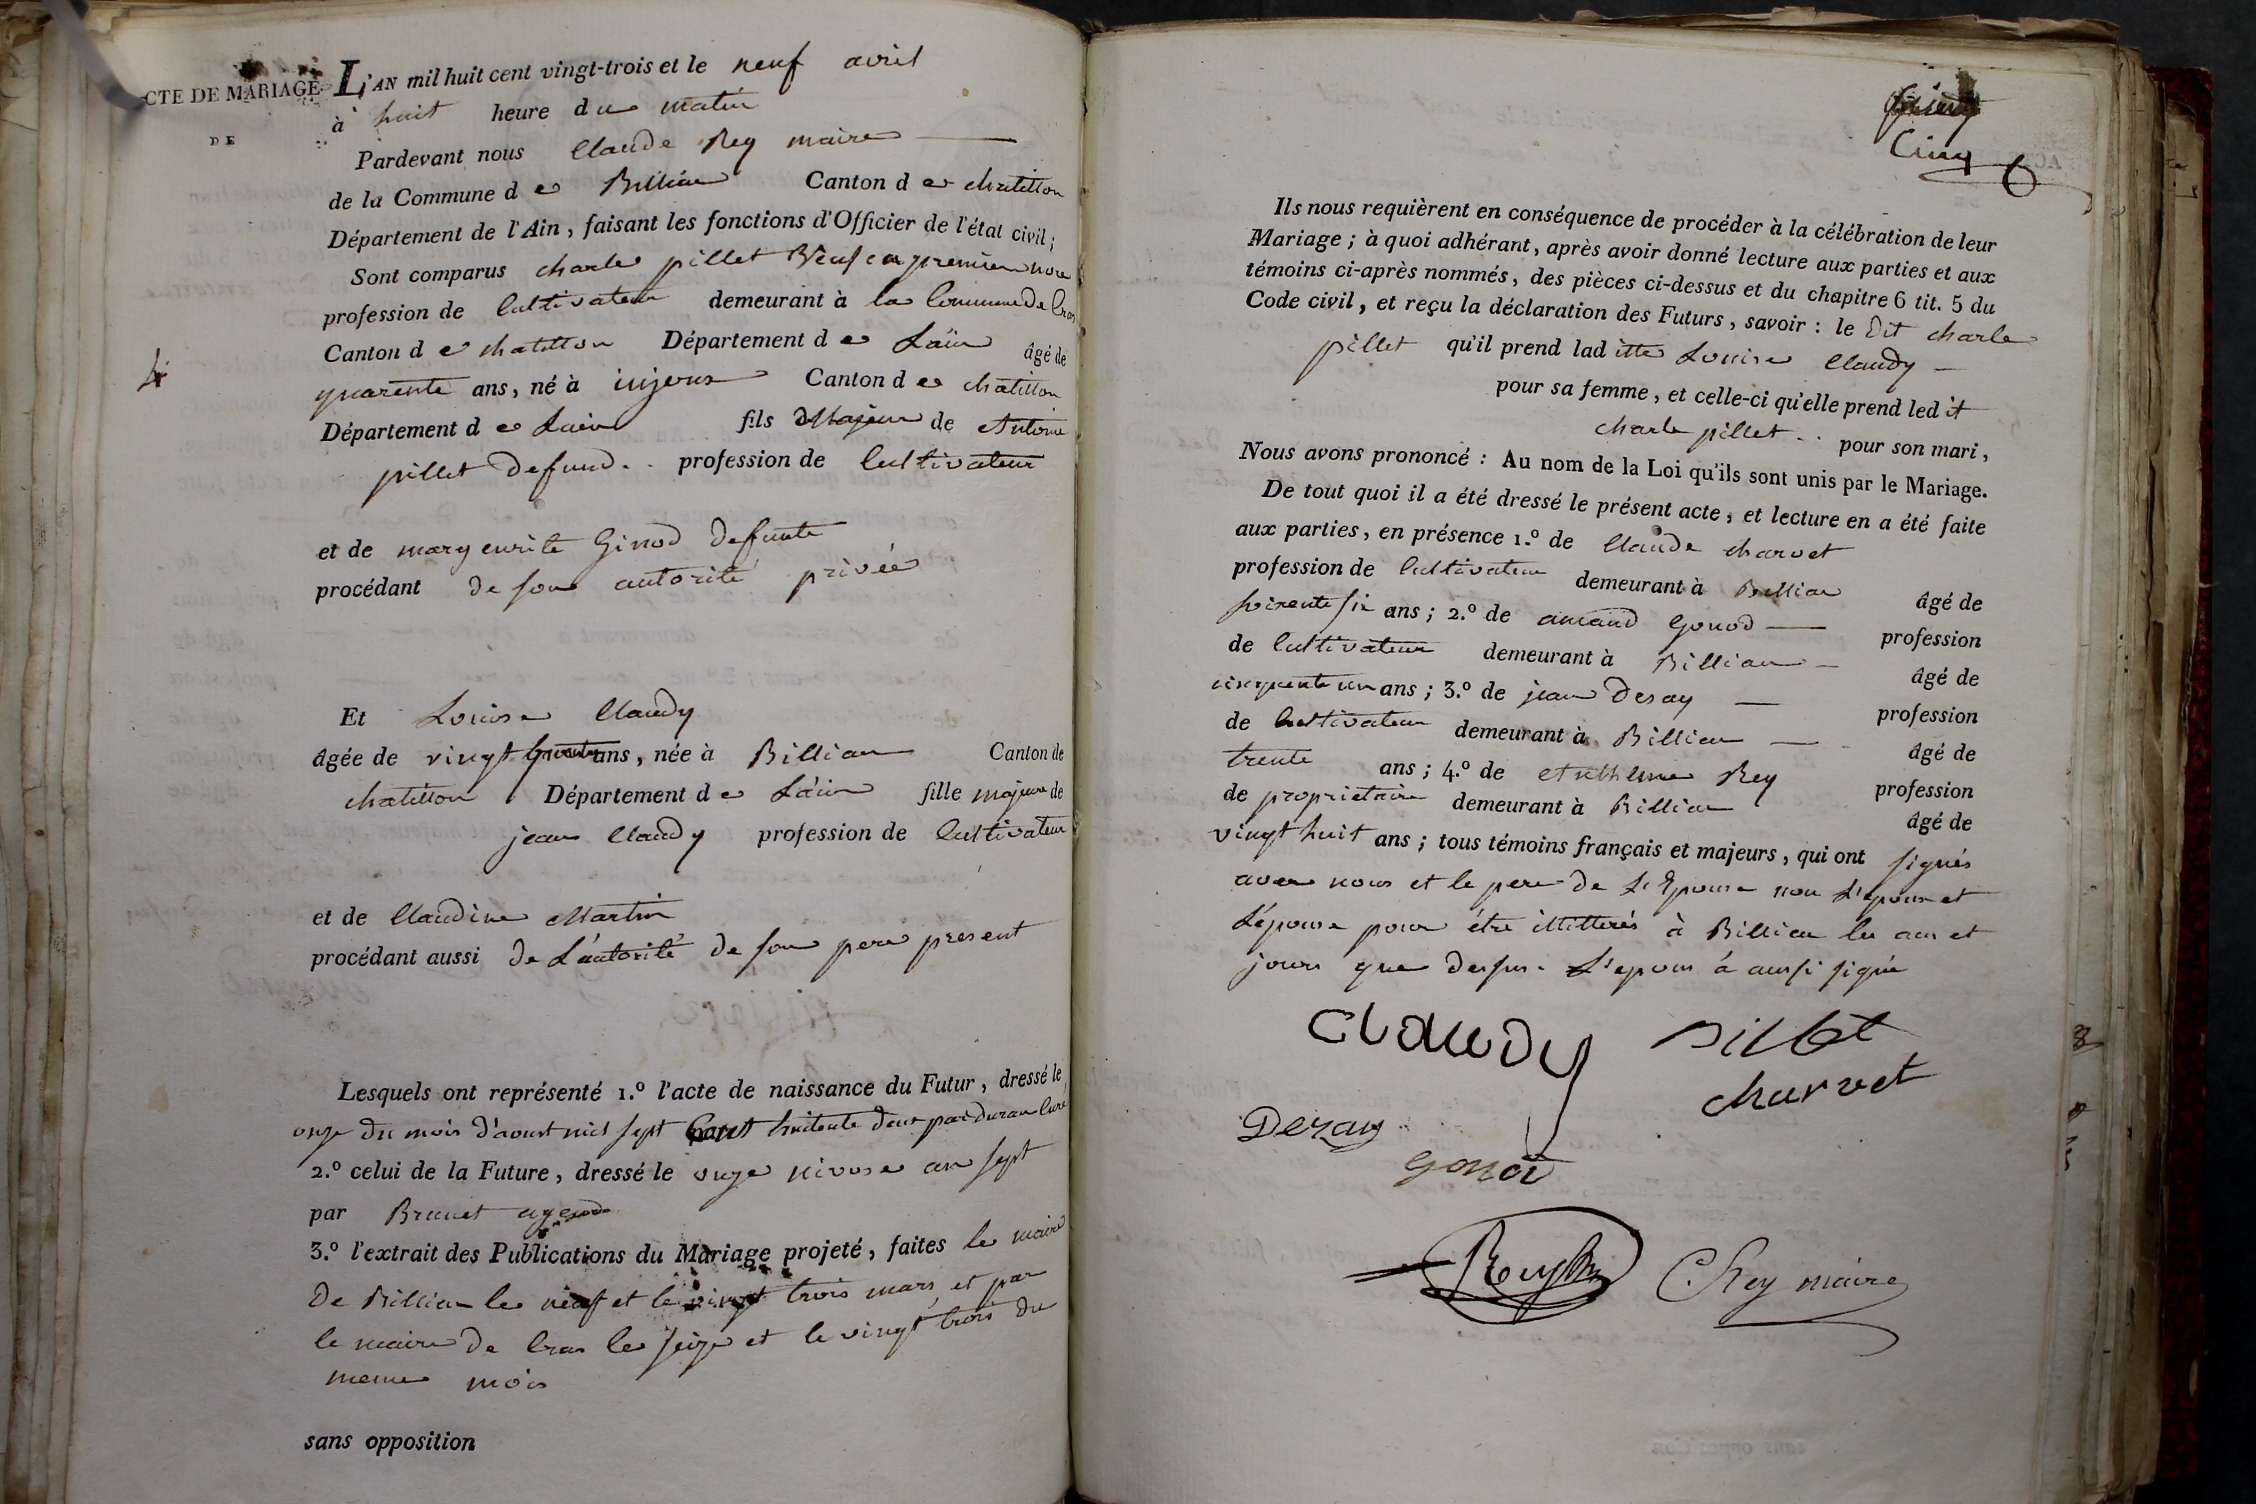 ACTE DE MARIAGE
DE
4
L'AN mil huit cent vingt-trois et le neuf avril
à huit heure du matin
Pardevant nous Claude Rey maire
de la Commune de Billiau Canton de chatillon
Département de l'Ain, faisant les fonctions d'Officier de l'état civil;
Sont comparus charle pillet Veuf en premier noce
profession de Cultivateur demeurant à la Commune de Cras
Canton de chatillon Département de Lain âgé de
quarente ans, né à injoux Canton de chatillon
Département de Lain fils Majeur de Antoine
pillet defund .. profession de Cultivateur
et de marguerite Ginod defunte
procédant de son autorité privée
Et Louise Claudy
âgée de vingt ans, née à Billiau Canton de
chatillon Département de Lain fille majeure de
jean Claudy profession de Cultivateur
et de Claudine Martin
procédant aussi de L'autorité de son pere present
Lesquels ont représenté 1.º l'acte de naissance du Futur, dressé le
onze du mois d'aoust mil sept Cent huitente deux par duran Curé
2.º celui de la Future, dressé le onze nivose an sept
par Brunet agend
3.º l'extrait des Publications du Mariage projeté, faites le maire
De Billiau le neuf et le vingt trois mars et par
le maire de Cras le seize et le vingt trois du
meme mois
sans opposition
Cinq
6
Ils nous requièrent en conséquence de procéder à la célébration de leur
Mariage; à quoi adhérant, après avoir donné lecture aux parties et aux
témoins ci-après nommés, des pièces ci-dessus et du chapitre 6 tit. 5 du
Code civil, et reçu la déclaration des Futurs, savoir: le dit charle
pillet qu'il prend laditte Louise Claudy
pour sa femme, et celle-ci qu'elle prend ledit
charle pillet .. pour son mari,
Nous avons prononcé: Au nom de la Loi qu'ils sont unis par le Mariage.
De tout quoi il a été dressé le présent acte, et lecture en a été faite
aux parties, en présence 1.º de Claude charvet
profession de Cultivateur demeurant à Billiau âgé de
soixente six ans; 2.º de amand Gonod profession
de Cultivateur demeurant à Billiau âgé de
cinquente un ans; 3.º de jean Desay profession
de Cultivateur demeurant à Billiau âgé de
trente ans; 4.º de Anthelme Rey profession
de proprietaire demeurant à Billiau âgé de
vingt huit ans; tous témoins français et majeurs, qui ont signés
avec nous et le pere de L'Epouse non L'epoux et
L'épouse pour étre illitterés à Billiau les an et
jours que dessus. L'epoux à aussi signé
CLAUDY pillet
charvet
Deray
gonod
Rey
C Rey maire